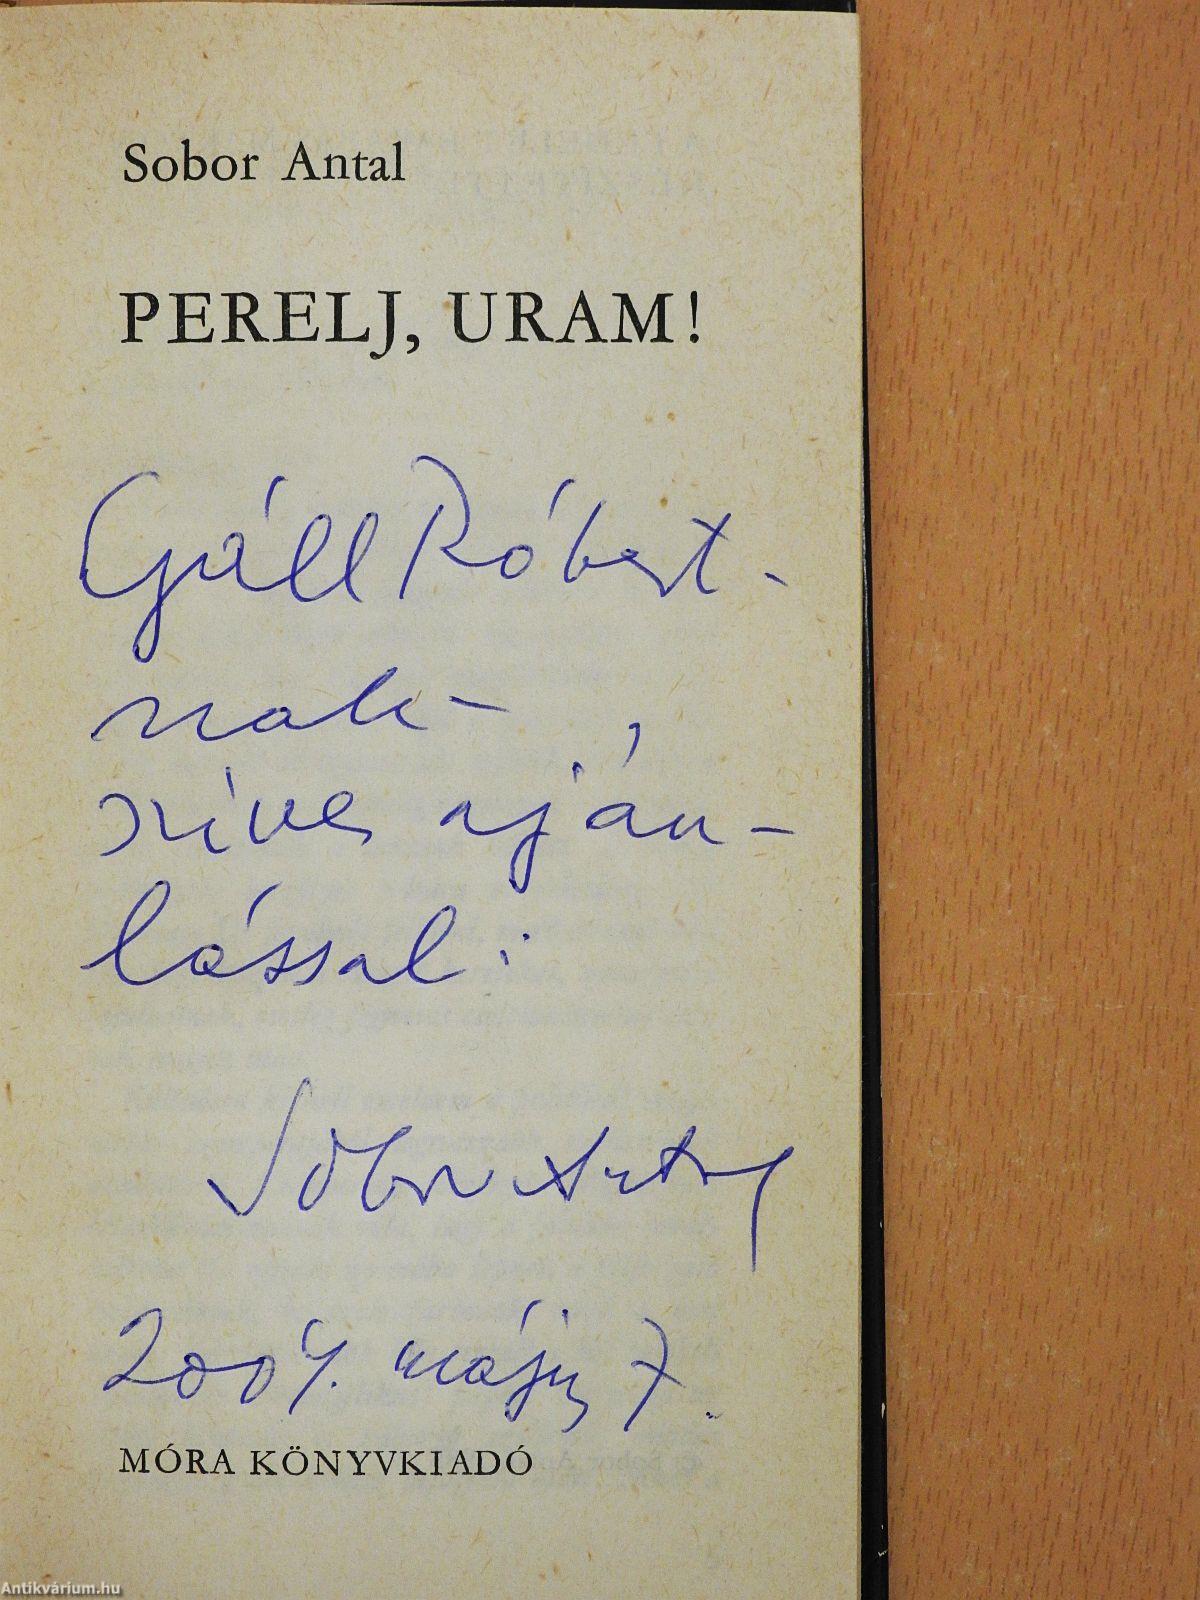 Sobor Antal
PERELJ, URAM!
Gáll Róbert-
nak
szíves aján-
lással:
Sobor Antal
2004. május 7.
MÓRA KÖNYVKIADÓ
Antikvárium.hu